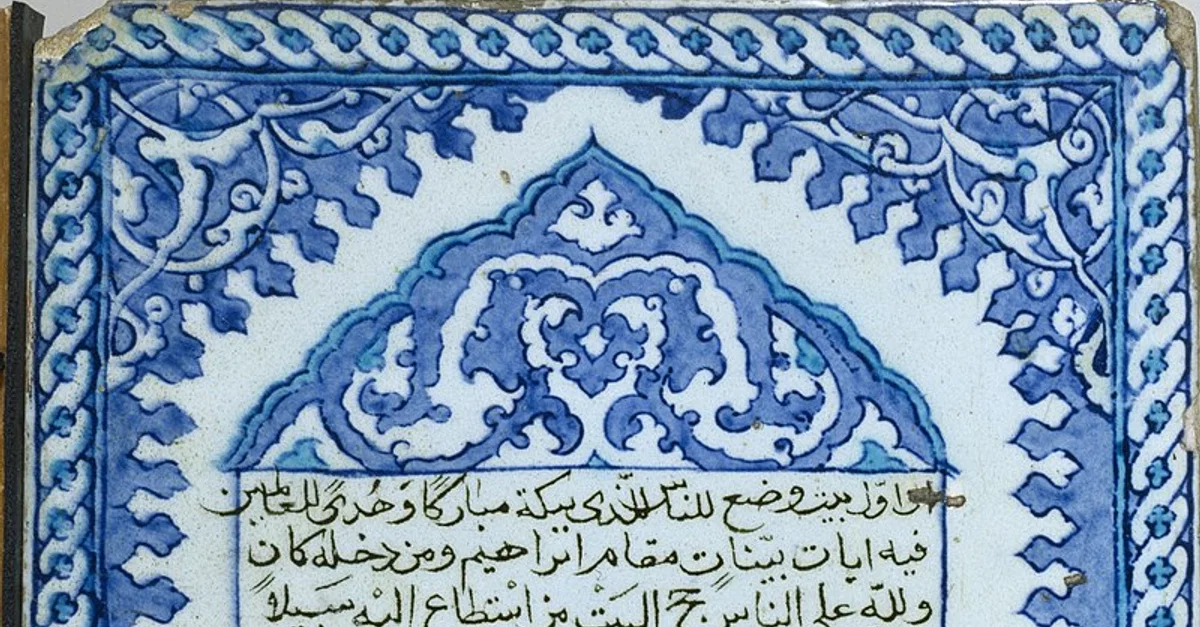 ان اوّل بيت وضع للناس للّذى ببكة مباركًا وَهُدىً للعالمين
فيه ايات بيّنات مقام ابراهيم ومن دخله كان
ولله على الناس حج البيْت من اسْتطاع اليْه سَبيلاً